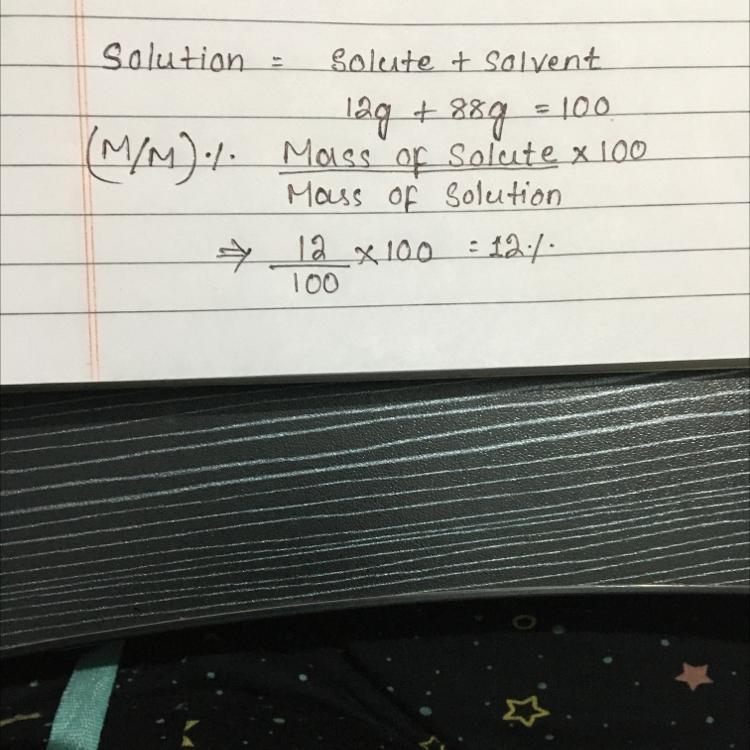 Solution = Solute + Solvent
12g + 88g = 100
(M/M) ·/. Mass of Solute × 100
Mass of Solution
⇒ 12 × 100 = 12 ·/.
100